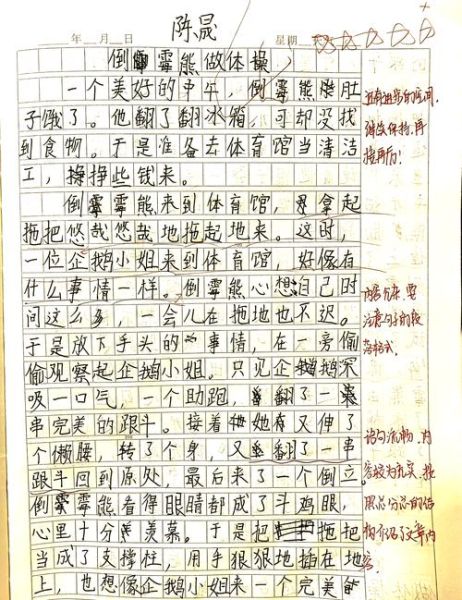 陈晟
年 月 日 星期
倒霉熊做体操
一个美好的中午，倒霉熊熊肚
子饿了。他翻了翻冰箱，可却没找
到食物。于是准备去体育馆当清洁
工，挣些钱来。
倒霉熊来到体育馆，拿起
拖把悠哉悠哉地拖起地来。这时，
一位企鹅小姐来到体育馆，好像有
什么事情一样。倒霉熊心想自己时
间这么多，一会儿在拖地也不迟。
于是放下手头的事情，在一旁偷
偷观察起企鹅小姐，只见企鹅深
吸一口气，一个助跑，翻了一
串完美的跟斗。接着她又伸了
个懒腰，转了个身，又翻了一串
跟斗回到原处，最后来了一个倒立。
倒霉熊看得眼睛都成了斗鸡眼，
心里十分羡慕。于是把拖把
当成了支撑柱，用手狠狠地插在地
上，也想像企鹅小姐来一个完美的
进步的空间，
继续保持，再
接再厉！
内容充实，要
注意句子的段
落格式。
语句流畅，内
容较为充实，按
照总分总的结
构介绍了文章内
容。